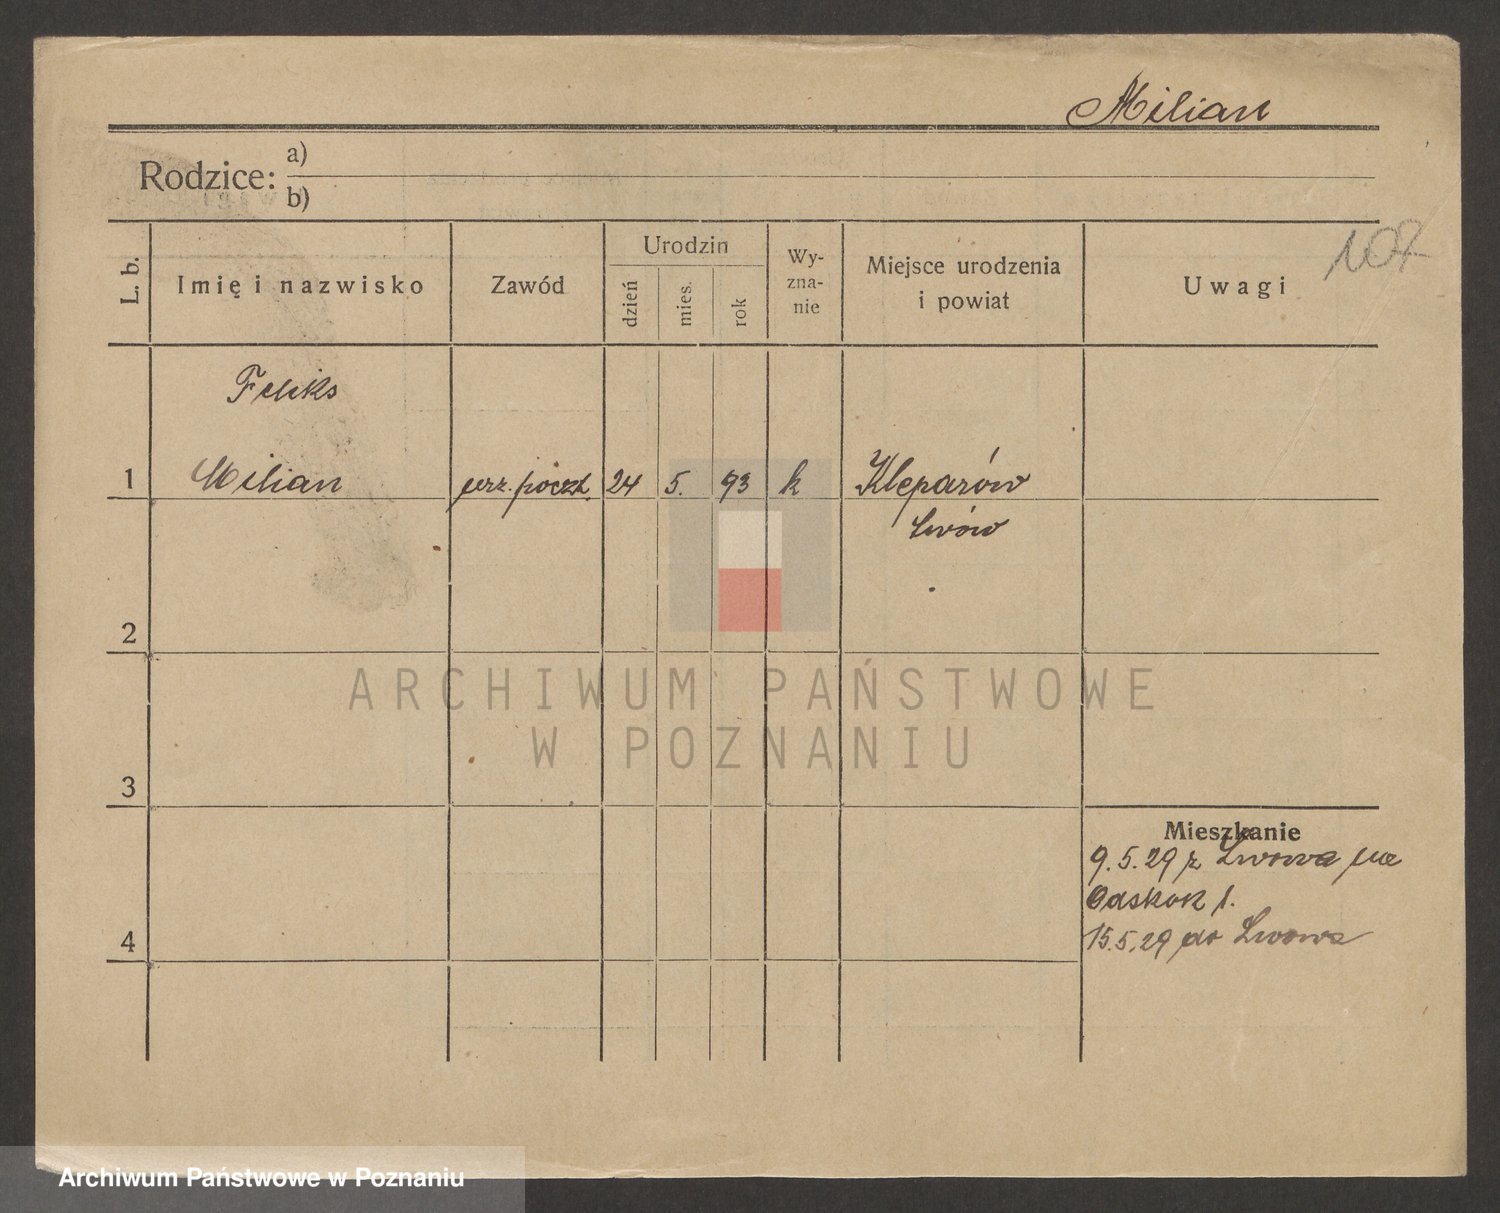 Milian
Rodzice: a)
b)
107
L. b. Imię i nazwisko Zawód Urodzin dzień mies. rok Wy-
zna-
nie Miejsce urodzenia
i powiat Uwagi
Feliks
1 Milian urz. poczt. 24 5. 93 k Kleparów
Lwów
2
3
Mieszkanie
9.5.29 z Lwowa na
4
15.5.29 do Lwowa
ARCHIWUM PAŃSTWOWE
W POZNANIU
Archiwum Państwowe w Poznaniu